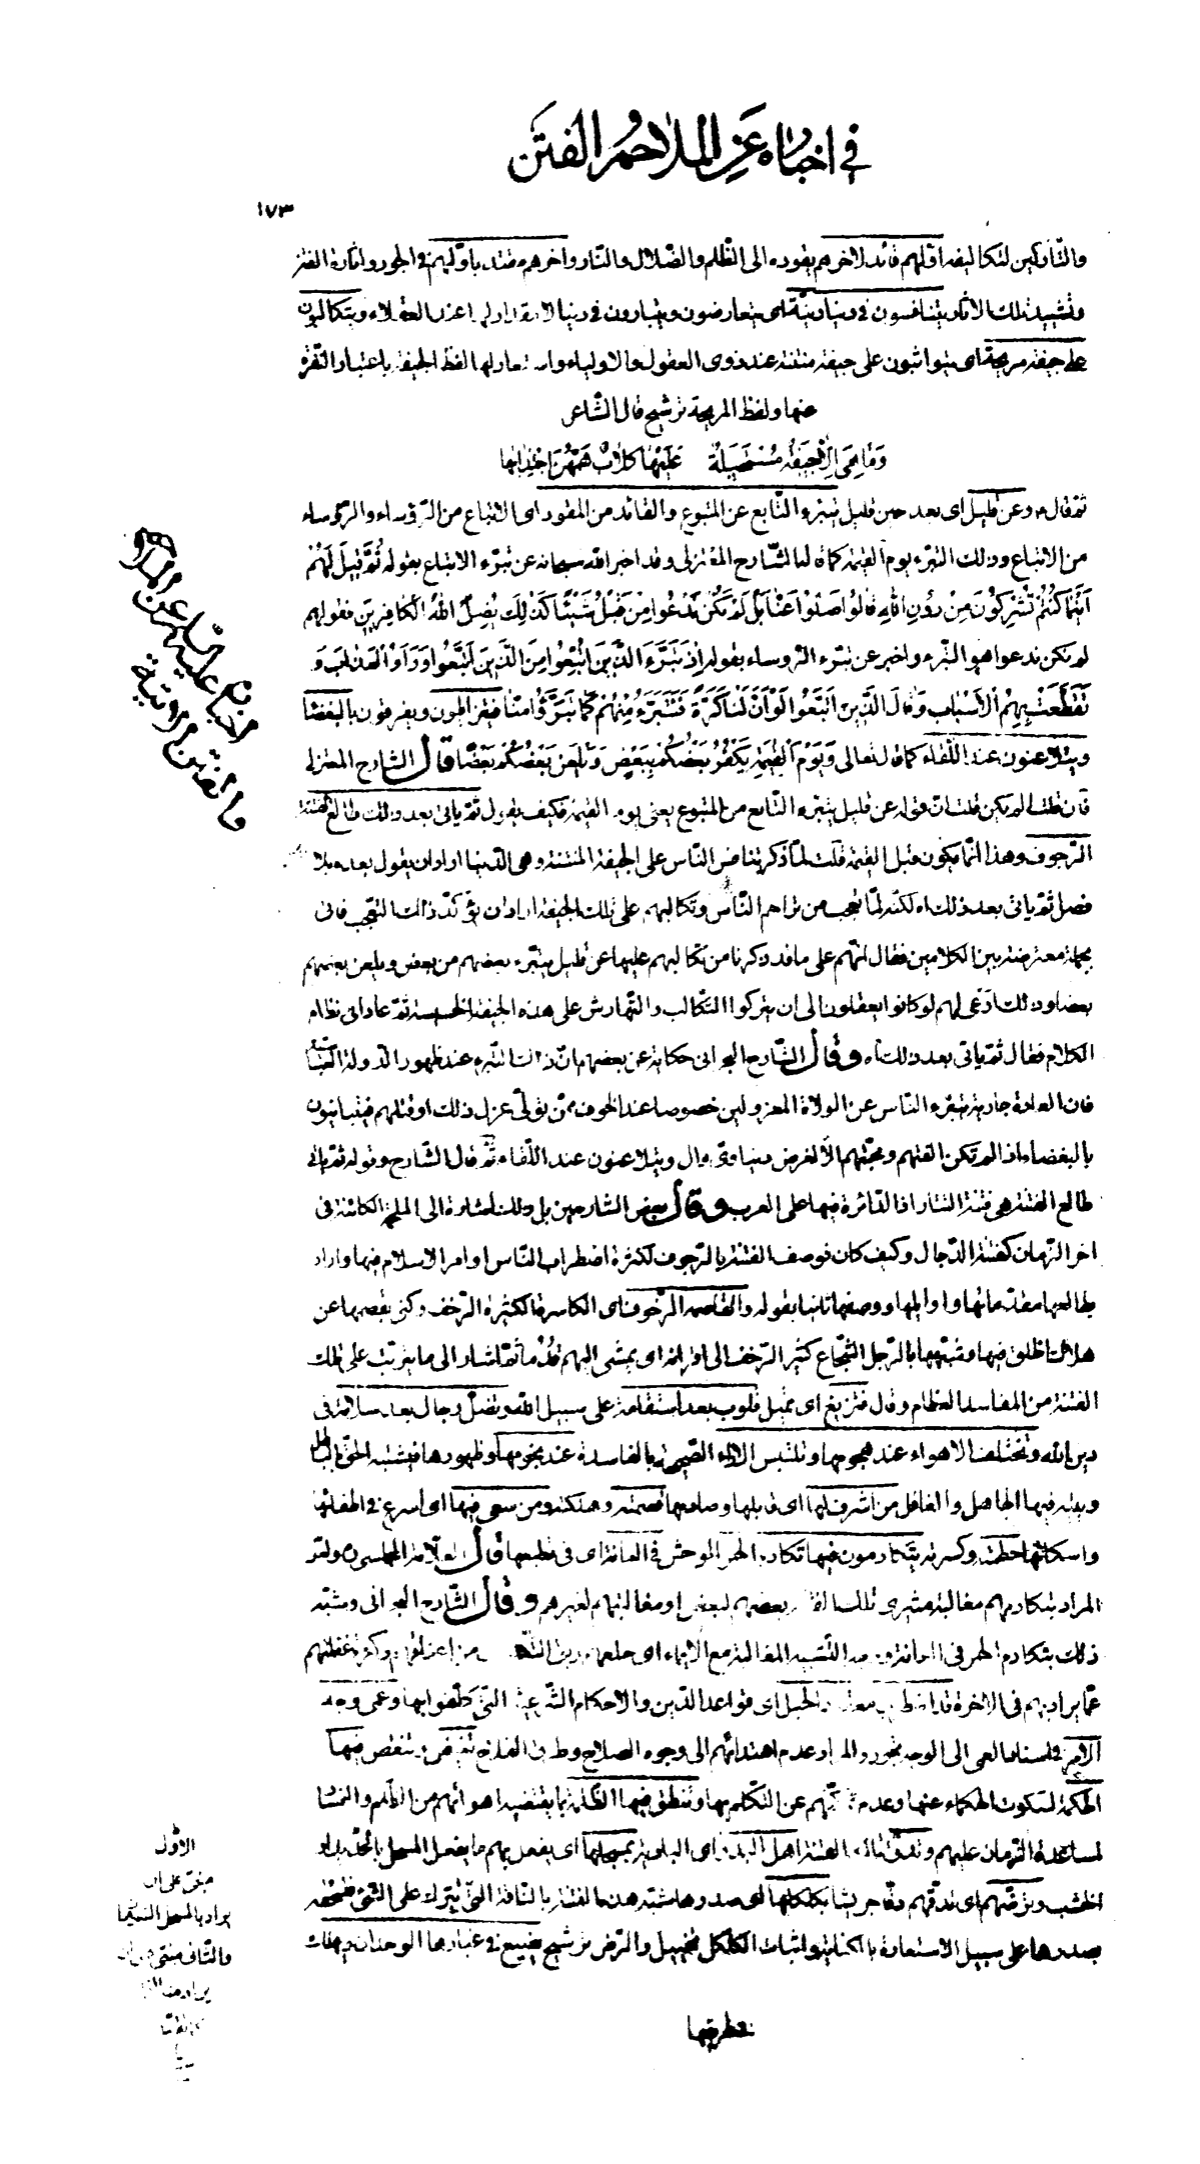 في اخباره عن الملاحم والفتن
١٧٣
والتّاركين لتكاليفه اوّلهم قائد لاخرهم يقوده الى الظّلم والضّلال والنّار واخرهم مقتد باوّلهم في الجور واثارة الفتن
وتشييد تلك الاثار يتنافسون في دنيا دنيّة اى يتعارضون ويتبارون في دنيا لا مقدار لها عند العقلاء ويتكالبون
على جيفة مريحة اى يتواثبون على جيفة منتنة عند ذوى العقول والاولياء واستعار لها لفظ الجيفة باعتبار النّفرة
عنها ولفظ المريحة ترشيح قال الشّاعر
وَمَا هِىَ اِلاّ جيفَةٌ مُسْتَحيلَةٌ عَلَيْها كِلابٌ هَمُّهُنَّ اجْتِذابُها
ثمّ قال ٤ وعن قليل اى بعد حين قليل يتبرّء التّابع عن المتبوع والقائد من المقود اى الاتباع من الرّؤساء والرّؤساء
من الاتباع وذلك التبرّء يوم القيمة كما قاله الشّارح المعتزلى وقد اخبر الله سبحانه عن تبرّء الاتباع بقوله ثُمَّ قيلَ لَهُمْ
اَيْنَما كُنْتُمْ تُشْرِكُونَ مِنْ دُونِ اللهِ قالُوا ضَلُّوا عَنَّا بَلْ لَمْ نَكُنْ نَدْعُوا مِنْ قَبْلُ شَيْئًا كَذلِكَ يُضِلُّ اللهُ الْكافِرينَ فقولهم
لم نكن ندعوا هو التبرّء واخبر عن تبرّء الرّوساء بقوله اِذْ تَبَرَّءَ الَّذينَ اتُّبِعُوا مِنَ الَّذينَ اتَّبَعُوا وَرَاَوُا الْعَذابَ وَ
تَقَطَّعَتْ بِهِمُ الْاَسْبابُ وَقالَ الَّذينَ اتَّبَعُوا لَوْ اَنَّ لَنا كَرَّةً فَنَتَبَرَّءَ مِنْهُمْ كَما تَبَرَّؤُا مِنّا فيتزايلون ويفرقون بالبغضاء
ويتلاعنون عند اللّقاء كما قال تعالى وَيَوْمَ الْقِيمَةِ يَكْفُرُ بَعْضُكُمْ بِبَعْضٍ وَيَلْعَنُ بَعْضُكُمْ بَعْضًا قال الشارح المعتزلى
فان قلت الم يكن قلت انّ قوله عن قليل يتبرّء التّابع من المتبوع يعنى يوم القيمة فكيف يقول ثمّ ياتى بعد ذلك طالع الفتنة
الرّجوف وهذا انّما يكون قبل القيمة قلت لمّا ذكر تنافس النّاس على الجيفة المنتنة وهى الدّنيا اراد ان يقول بعده بلا
فصل ثمّ ياتى بعد ذلك اه لكنّه لمّا تعجّب من تزاحم النّاس وتكالبهم على تلك الجيفة اراد ان يؤكّد ذلك التعّجب فاتى
بجملة معترضة بين الكلامين فقال انّهم على ما قد ذكرنا من تكالبهم عليها عن قليل يتبرّء بعضهم من بعض ويلعن بعضهم
بعضا وذلك ادعى لهم لو كانوا يعقلون الى ان يتركوا التّكالب والتّهارش على هذه الجيفة الخسيسة ثمّ عاد الى نظام
الكلام فقال ثمّ ياتى بعد ذلك اه وقال الشّارح البحرانى حكاية عن بعضهم انّ ذلك التبرّء عند ظهور الدّولة العبّاسيّة
فان العادة جارية بتبرّء النّاس عن الولاة المعزولين خصوصا عند الخوف ممّن تولّى عزل ذلك او قتلهم فيتباينون
بالبغضاء اذ لم تكن الفتهم ومحبّتهم الاّ لغرض دنياوىّ زال ويتلاعنون عند اللّقاء ثمّ قال الشّارح وقوله ثمّ ياتى
طالع الفتنة هى فتنة التتار اذ الدّائرة فيها على العرب وقال بعض الشارحين بل ذلك اشارة الى الملحمة الكائنة فى
اخر الزّمان كفتنة الدّجال وكيف كان فوصف الفتنة بالرّجوف لكثرة اضطراب النّاس او امر الاسلام فيها واراد
بطالعها مقدّماتها واوائلها ووصفها ثانيا بقوله والقاصمة الزّحوف اى الكاسرة الكثيرة الزّحف وكنى بقصمها عن
هلاك الخلق فيها وشبّهها بالرّجل الشّجاع كثير الزّحف الى اقرانه اى يمشى اليهم قُدُمًا ثمّ اشار الى ما يترتّب على تلك
الفتنة من المفاسد العظام وقال فتزيغ اى تميل قلوب بعد استقامة على سبيل الله وتضلّ رجال بعد سلامة فى
دين الله وتختلف الاهواء عند هجومها وتلتبس الاراء الصّحيحة بالفاسدة عند نجومها وظهورها فيشتبه الحقّ بالباطل
ويتيه فيها الجاهل والغافل من اشرف لها اى قابلها وصادمها قصمته وهلكته ومن سعى فيها اى اسرع في اطفائها
واسكاتها حطمته وكسرته يتكادمون فيها تكادم الحمر الوحش في العانة اى فى قطيعها قال العلّامة المجلسىّ ره ولعلّ
المراد بتكادمهم مغالبة مثيرى تلك الفتنة بعضهم لبعض او مغالبتهم لغيرهم وقال الشّارح البحرانى وشبّه
ذلك بتكادم الحمر فى العانة ووجه التّشبيه المغالبة مع الايماء اى خلعهم ربق التّكليف من اعناقهم وكثرة غفلتهم
عمّا يراد بهم فى الاخرة قد اضطرب معقود الحبل اى قواعد الدّين والاحكام الشّرعيّة الّتى كلّفوا بها وعمى وجه
الامر فى اسناد العمى الى الوجه تجوّز والمراد عدم اهتدائهم الى وجوه الصلاح وطريق الفلاح تغيض وتنقص فيها
الحكمة لسكوت الحكماء عنها وعدم تمكّنهم عن التكلّم بها وتنطق فيها الظّلمة بما يقتضيه اهوائهم من الظّلم والفساد
لمساعدة الزّمان عليهم وتدقّ تلك الفتنة اهل البدو اى البادية بمسحلها اى يفعل بهم ما يفعل المسحل بالحديد او
الخشب وترضّهم اى تدقّهم دقّا جريشا بكلكلها اى صدرها شبّه هذه الفتنة بالنّاقة الّتى تبرك على الشّئ فتسحقه
بصدرها على سبيل الاستعارة بالكناية واثبات الكلكل تخييل والرّض ترشيح يضيع في غبارها الوحدان ويهلك
فى طريقها
الاوّل
مبنىّ على ان
يراد بالمسحل السّكين
والثّانى مبنىّ على ان
يراد منه